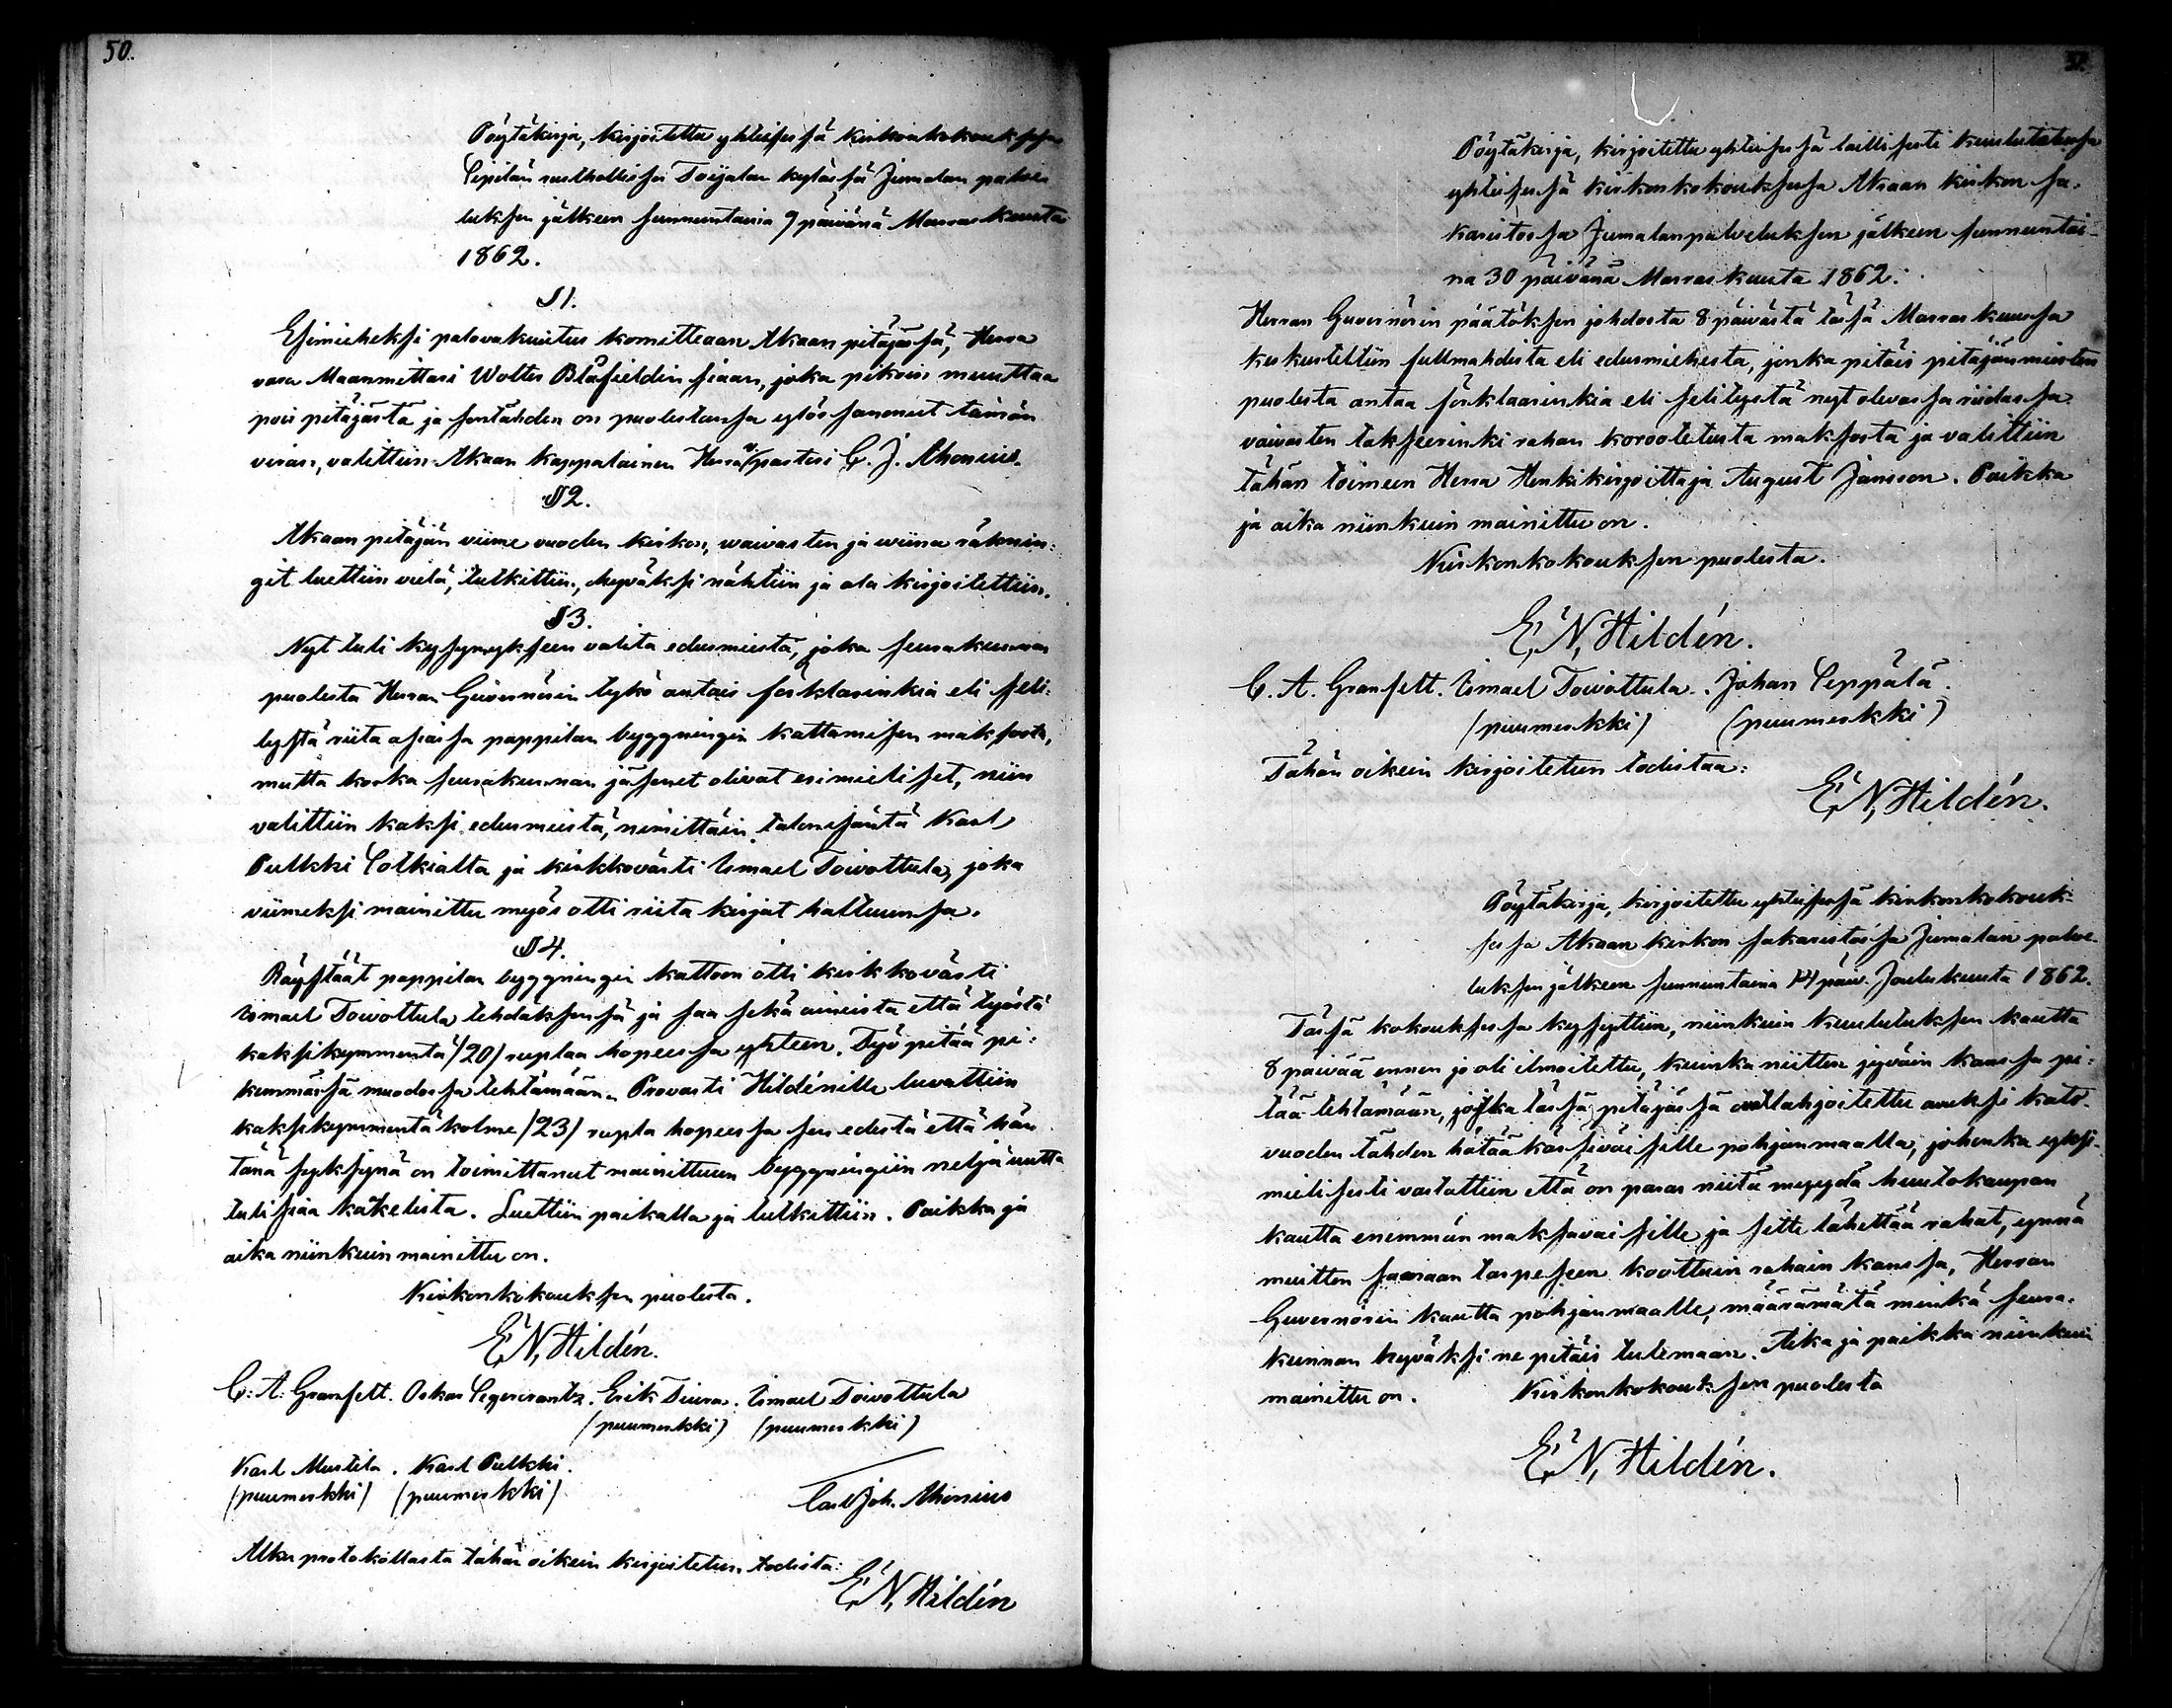 50.
Pöytäkirja, kirjoitettu yhteisessä kirkonkokouksessa
Lepilän rusthollissa Toijalan kylässä Jumalan palve-
luksen jälkeen sunnuntaina 9 päivänä Marraskuuta
1862.
§1.
Esimieheksi palovakuutus komitteaan Akaan pitäjässä, Herra
vara Maanmittari Wolter Blåfieldin siaan, joka pikoin muuttaa
pois pitäjästä ja sentähden on puolestansa ylös sanonut tämän
viran, valittiin Akaan kappalainen Herra v/pastori C. J. Ahonius.
§2.
Akaan pitäjän viime vuoden kirkon, waivasten ja wiina räknin:
git luettiin vielä, tutkittiin, hyväksi nähtiin ja ala kirjoitettiin.
§3.
Nyt tuli kysymykseen valita edusmiestä, joka seurakunnan
puolesta Herran Guvernörin tykö antais förklarinkia eli seli-
tystä riita asiassa pappilan byggningin kattamisen maksosta,
mutta koska seurakunnan jäsenet olivat erimieliset, niin
valittiin kaksi edusmiestä, nimittäin talonisäntä Karl
Pulkki Lotkialta ja kirkkovärti Ismael Toivottula, joka
viimeksi mainittu myös otti riita kirjat haltuunsa.
§4.
Räystäät pappilan byggningin kattoon otti kirkkovärti
Ismael Toivottula tehdäksensä ja saa sekä aineista että työstä
kaksikymmentä /20/ ruplaa hopeessa yhteen. Työ pitää pi-
kemmässä muodossa tehtämään. Provasti Hildénille luvattiin
kaksikymmentäkolme /23/ rupla hopeessa sen edestä että hän
tänä syksynä on toimittanut mainittuun byggningiin neljä uutta
tulisiaa kakelista. Luettiin paikalla ja tutkittiin. Paikka ja
aika niinkuin mainittu on.
Kirkonkokouksen puolesta.
E, N, Hildén.
C: A: Granfelt. Oskar Segercrantz. Erik Tiura. Ismael Toivottula
(puumerkki) (puumerkki)
Karl Mustila. Karl Pulkki.
(puumerkki) (puumerkki)
Carl Joh. Ahonius
Alku protokollasta tähän oikein kirjoitetun todista:
E, N, Hildén
51.
Pöytäkirja, kirjoitettu yhteisessä laillisesti kuulutetussa
yhteisessä kirkonkokouksessa Akaan kirkon sa-
karistossa Jumalanpalveluksen jälkeen sunnuntai-
na 30 päivänä Marraskuuta 1862.
Herran Guvernörin päätöksen johdosta 8 päivästä tässä Marraskuussa
keskusteltiin fullmahdista eli edusmiehestä, jonka pitäis pitäjänmiesten
puolesta antaa förklaarinkia eli selitystä nyt olevassa riidassa
vaivasten takseerinki rahan korootetusta maksosta ja valittiin
tähän toimeen Herra Henkikirjoittaja August Jansson. Paikka
ja aika niinkuin mainittu on.
Kirkonkokouksen puolesta.
E, N, Hildén.
C. A. Granfelt. Ismael Toivottula. Johan Leppälä.
(puumerkki) (puumerkki)
Tähän oikein kirjoitetun todistaa:
E, N, Hildén.
Pöytäkirja, kirjoitettu yhteisessä kirkonkokouk-
sessa Akaan kirkon sakaristossa Jumalan palve-
luksen jälkeen sunnuntaina 14 päiv. Joulukuuta 1862.
Tässä kokouksessa kysyttiin, niinkuin kuulutuksen kautta
8 päivää ennen jo oli ilmoitettu, kuinka niitten jyväin kanssa pi-
tää tehtämään, jotka tässä pitäjässä lahjoitettu avuksi kato-
vuoden tähden hätää kärsiväisille pohjanmaalla, johonka yksi-
mielisesti vastattiin että on paras niitä myydä huutokaupan
kautta enemmän maksavaisille ja sitte lähettää rahat, ynnä
muitten samaan tarpeseen koottuin rahain kanssa, Herran
Guvernörin kautta pohjanmaalle, määräämätä minkä seura-
kunnan hyväksi ne pitäis tulemaan. Aika ja paikka niinkuin
mainittu on. Kirkonkokouksen puolesta
E, N, Hildén.